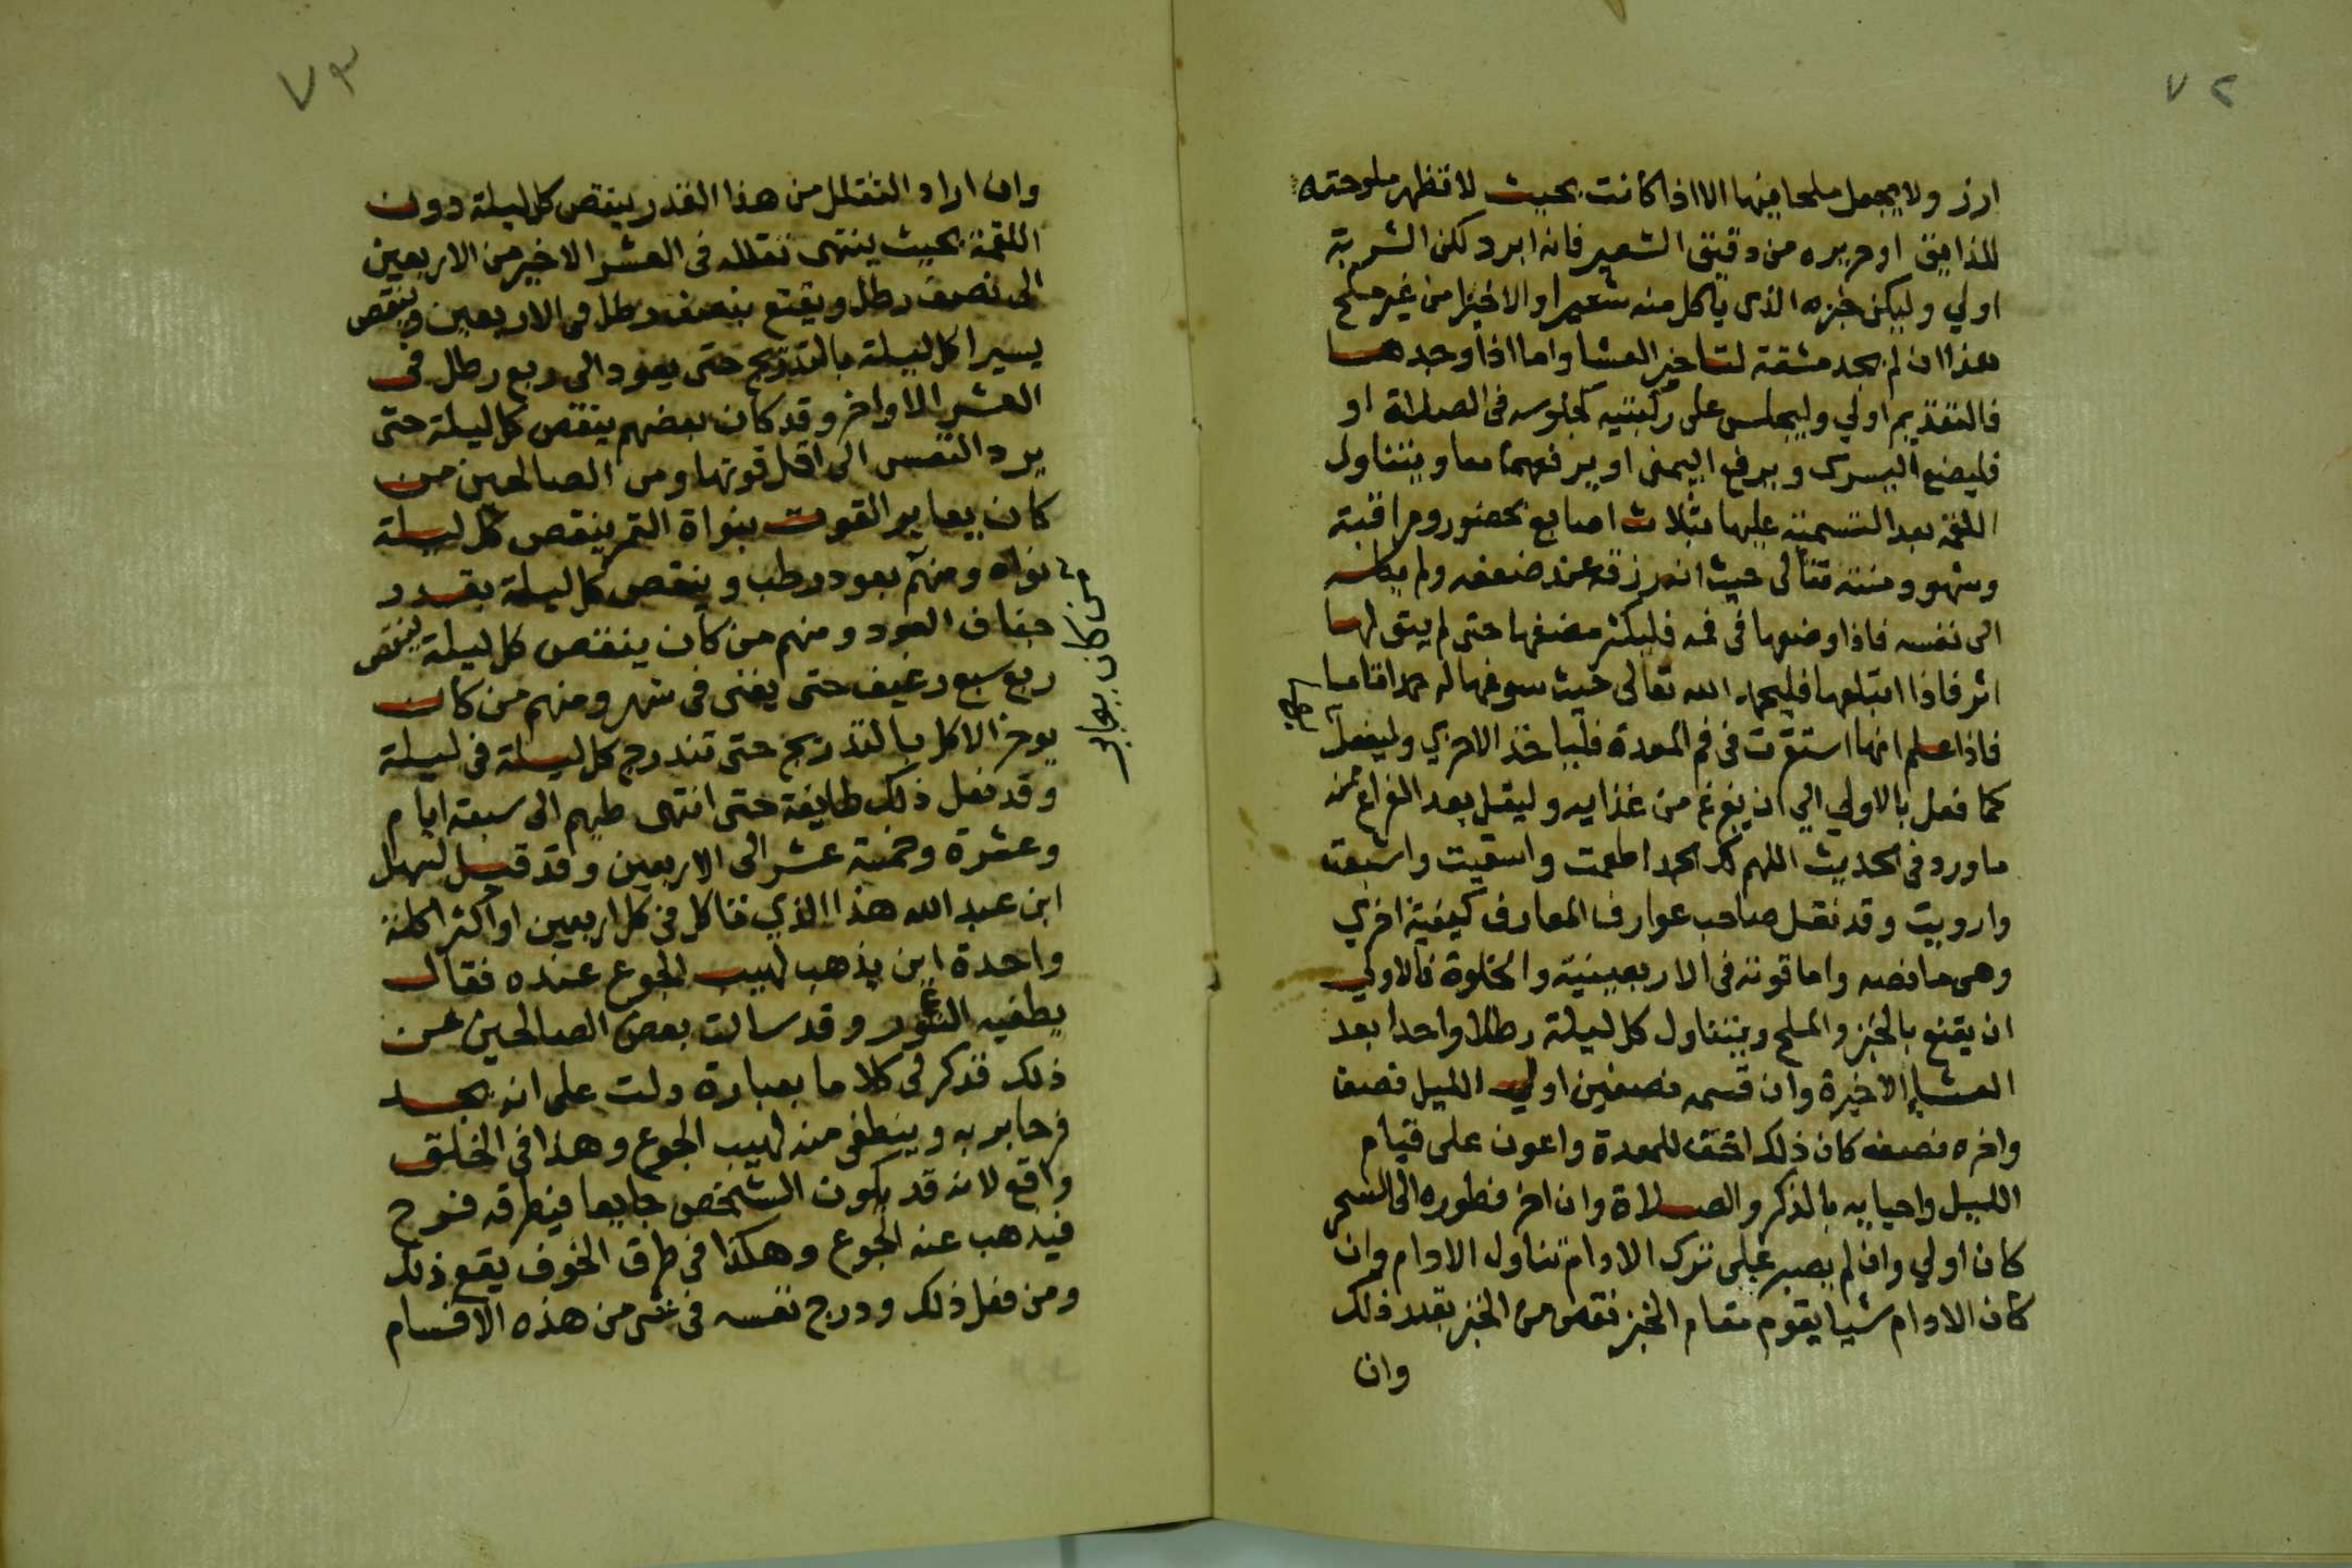 ٧٢
ارز ولا يجعل ملحا فيها الا اذا كانت بحيث لا تظهر ملوحته
للذايق او حريره من دقيق الشعير فانه ابرد لكن الشربة
اولي وليكن خبزه الذي ياكل منه شعيرا والا خبزا من غير ملح
هذا ان لم يجد مشقة لتاخير العشا واما اذا وجدها
فالتقديم اولي وليجلس على ركبتيه كجلوسه في الصلاة او
فليضع اليسرى ويرفع اليمنى او يرفعهما معا ويتناول
اللقمة بعد التسمية عليها بثلاث اصابع بحضور ومراقبة
وشهود منته تعالى حيث انه رزقه عند ضعفه ولم يكله
الى نفسه فاذا وضعها في فمه فليكثر مضغها حتى لم يبق لها
اثر فاذا ابتلعها فليحمد الله تعالى حيث سوغها له حمدا تاما
فاذا علم انها استقرت في فم المعدة فلياخذ الاخري وليفعل
كما فعل بالاولي الي ان يفرغ من غذايه وليقل بعد الفراغ منه
ما ورد في الحديث اللهم لك الحمد اطعمت واسقيت واشبعت
وارويت وقد نقل صاحب عوارف المعارف كيفية اخري
وهي ما نصه واما قوته في الاربعينية والخلوة فالاولي
ان يقنع بالخبز والملح ويتناول كل ليلة رطلا واحدا بعد
العشا الاخيرة وان قسمه نصفين اول الليل نصف
واخره نصفه كان ذلك اخف للمعدة واعون على قيام
الليل واحيايه بالذكر والصلاة وان اخر فطوره الى السحر
كان اولي وان لم يصبر على ترك الادام تناول الادام وان
كان الادام شيا يقوم مقام الخبز نقص من الخبز بقدر ذلك
وان
٧٣
وان اراد التقلل من هذا القدر ينقص كل ليلة دون
اللقمة بحيث ينتهى تقلله في العشر الاخير من الاربعين
الى نصف رطل ويقنع بنصف رطل في الاربعين وينقص
يسيرا كل ليلة بالتدريج حتى يعود الى ربع رطل في
العشر الاواخر وقد كان بعضهم ينقص كل ليلة حتى
يرد النفس الى اقل قوتها ومن الصالحين من
كان يعاير القوت بنواة التمر ينقص كل ليلة
نواه ومنهم بعود رطب وينقص كل ليلة بقدر
من كان يعاير
جفاف العود ومنهم من كان ينقص كل ليلة
ربع سبع رغيف حتى يفنى في شهر ومنهم من كان
يوخر الاكل بالتدريج حتى تندرج كل ليلة في ليلة
وقد فعل ذلك طايفة حتى انتهى طيهم الى سبعة ايام
وعشرة وخمسة عشر الى الاربعين وقد قيل لسهل
ابن عبد الله هذا الذي تاكل في كل اربعين او اكثر اكلة
واحدة اين يذهب لهيب الجوع عنده فقال
يطفيه النور وقد سالت بعض الصالحين عن
ذلك فذكر لي كلاما بعبارة دلت على انه يجد
فرحا بربه وينطفى منه لهيب الجوع وهذا في الخلق
واقع لانه قد يكون الشخص جايعا فيطرقه فرح
فيذهب عنه الجوع وهكذا في طرق الخوف يقع ذلك
ومن فعل ذلك ودرج نفسه في شى من هذه الاقسام